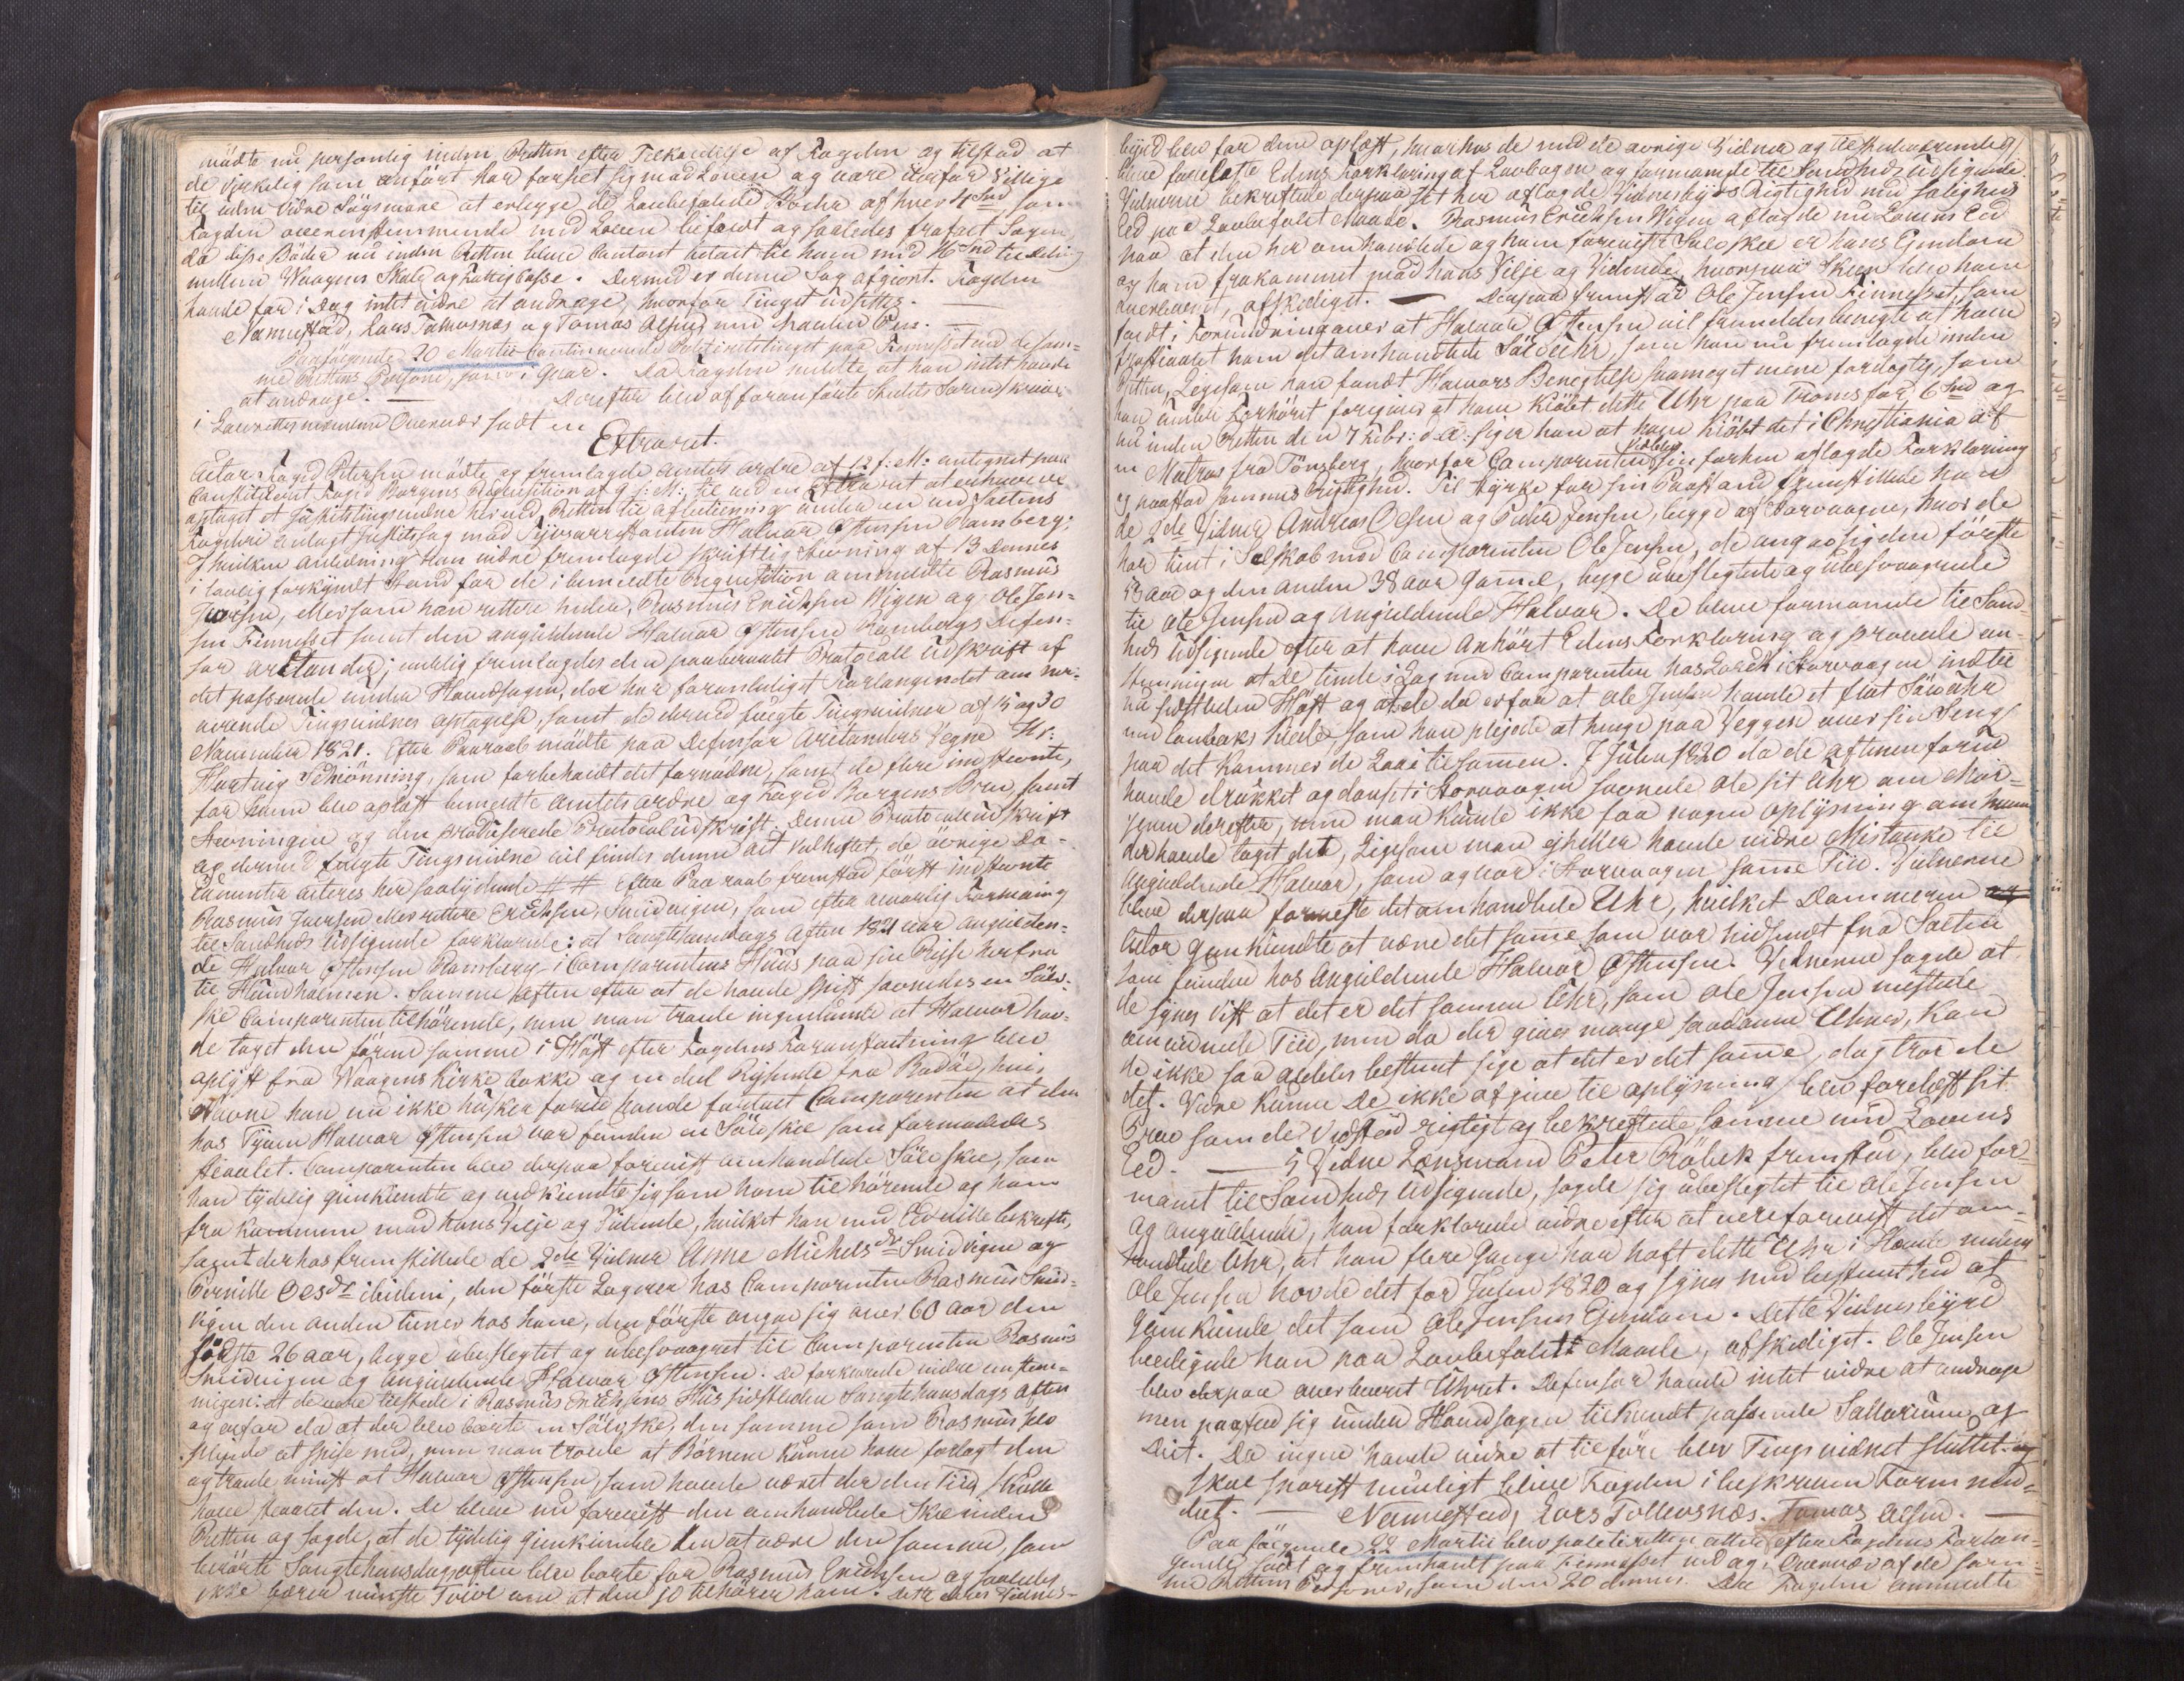 mödte nu personlig inden Retten efter Tilkaldelse af Fogden og tilstod at
de virkelig som anfört har forseet sig mod Loven og vare derfor villige
til uden vidre Søgsmaal at erlegge de Lovbefalede Böder af hver 4 Spd som
Fogden overensstemmende med Loven bifaldt og saaledes frafalt Sagen
da disse Böder nu inden Retten bleve Contant betalt til ham med 16 Spd til deling
mellem Waagens Skole og Fattig Casse. Dermed er denne Sag afgiort. Fogden
havde for i Dag intet vidre at andrage, hvorfor Tinget udsettes. —
Nannestad, Lars Tollevsnæs og Tomas Olsen med paaholden Pen. —
Paafölgende 20 Martii Continuerede Politieretstinget paa Finnesset med de sam-
me Rettens Personer, som i Gaar. Da Fogden meldte at han intet havde
at andrage. — Derefter blev af foranförte Stedets Sorenskriver
i Laurettesmændenes Overvær sadt en
Extraret.
Actor Foged Petersen mödte og fremlagde Amtets Ordre af 12 f: M: antegnet paa
Constitueret Foged Borgens Requisition af 9 f: M:, til ved en Extraret at erhverve
optaget et Justitstingsvidne herved Retten til afbenyttelse under en ved Saltens
Fogderi anlagt Justitssag mod Tyvsarrestanten Halvor Ostensen Ramberg;
I hvilken Anledning han vidre fremlagde skriftlig Stevning af 13 Dennes
i lovlig forkyndt Stand for de i bemeldte Requisition ommeldte Rasmus
Iversen, eller som han rettere heder, Rasmus Erichsen Wigen og Ole Jen-
sen Finnesset samt den angieldende Halvor Ostensen Rambergs Defen-
sor Arctander; endelig fremlagdes den paaberaabte Protocoll Udskrift af
det passerede under Hovedsagen, der har foranlediget Forlangendet om nær-
værende Tingsvidnes optagelse, samt de derved fulgte Tingsvidner af 15 og 30
November 1821. Efter Paaraab mödte paa Defensor Arctanders Vegne Hr:
Hartvig Schiönning, som forbeholdt det fornödne, samt de flere indstevnte,
for hvem blev oplæst bemeldte Amtets Ordre og Foged Borgens Brev, samt
Stevningen og den producerede Protocoludskrift. Denne Protocoludskrift
og dermed fulgte Tingsvidne vil findes denne act vedheftet, de övrige Do-
cumenter acteres her saalydende # # Efter Paaraab fremstod först indstevnte
Rasmus Iversen eller rettere Erichsen, Smidvigen, som efter alvorlig Formaning
til Sandheds Udsigende forklarede: at Sanghtehansdags Aften 1821 var angielden-
de Halvor Ostensen Ramberg i Comparentens Huus paa sin Rejse herfra
til Hundholmen. Samme Aften efter at de havde spist savnedes en Sölv-
ske Comparenten tilhörende, men man troede ingenlunde at Halvor hav-
de taget den förend samme i Höst efter Fogdens Foranstaltning blev
oplyst fra Waagens Kirke bakke og en deel Rejsende fra Bodöe, hvis
Navne han nu ikke husker forud havde fortalt Comparenten at den
hos Tyven Halvor Ostensen var funden en Sölvskee som formodedes
stiaalet. Comparenten blev derpaa foreviist omhandlede Sölv skee, som
han tydelig gienkiendte og vedkiendte sig som ham tilhörende og ham
fra kommen mod hans Vilje og Vidende, hvilket han med Eed ville bekrefte,
samt derhos fremstillede de 2de Vidner Anne Michelsdr Smidvigen og
Pernille Olesdr ibidem, den förste Logerer hos Comparenten Rasmus Smid-
vigen den anden tiener hos ham, den förste angav sig over 60 Aar den
sidste 26 aar, begge ubeslegtet og ubesvogret til Comparenten Rasmus
Smidvigen og angieldende Halvor Ostensen. De forklarede vidre eenstem-
migen: at de vare tilstede i Rasmus Erichsens Huus sidstleden Sanghtehansdags Aften
og erfor da at der blev borte en Sölvske, den samme som Rasmus selv
pleyede at spise med, men man troede at Börnene kunne have forlagt den
og troede mindst at Halvor Ostensen, som havde været der den Tiid, skulle
have stiaalet den. De bleve nu foreviist den omhandlede Skee inden
Retten og sagde, at de tydelig gienkiendte den at være den samme, som
berörte Sanghtehansdagsaften blev borte for Rasmus Erichsen og saaledes
ikke bærer mindste Tvivl om at den jo tilhörer ham. Dette deres Vidnes-
byrd blev for dem oplæst, hvorhos de med de övrige Vidner og tilstedeværende
bleve forelæste Edens Forklaring af Lovbogen og formanede til Sandheds udsigende.
Vidnerne bekreftede derpaa det her aflagde Vidnesbyrds Rigtighed med Saligheds
Eed paa Lovbefalet Maade. Rasmus Erichsen Wigen aflagde nu Lovens Eed
paa at den her omhandlede og ham foreviiste Sølvskee er hans Eyendom
og ham frakommet mod hans Vilje og Vidende, hvorpaa Skeen blev ham
overleveret, afskediget. — Derpaa fremstod Ole Jensen Finnesset, som
fandt i Forundring over at Halvor Ostensen vil fremdeles benegte at have
frastiaalet ham det omhandlede Sölv Uhr, som han nu fremlagde inden
Retten, Ligesom han fandt Halvors Benegtelse saameget mere fordegtig, som
han under Forhöret foregiver at have kiöbt dette Uhr paa Tromsöe for 6 Spd og
nu inden Retten den 7 Febr: d.A: siger han at have kiöbt det i Christiania af
en Matros fra Tönsberg, hvorfor Comparenten vedblev sin forhen aflagde Forklaring
og paastod sammes Rigtighed. Til Styrke for sin Paastand fremstillede han
de 2de Vidner Andreas Olsen og Peder Jensen, begge af Storvaagen, hvor de
har tient i Selskab med Comparenten Ole Jensen, de angav sig den förste
53 aar og den anden 38 aar Gamel, begge ubeslegtede og ubesvogrede
til Ole Jensen og Angieldende Halvor. De bleve formanede til Sand-
heds Udsigende efter at have Anhört Edens Forklaring og provede een-
stemmigen at de tiente i Lag med Comparenten hos Lorch i Storvaagen indtil
nu sidstleden Höst og at de da erfor at Ole Jensen havde et fladt Sölvuhr
med tombaks kiede som han plejede at henge paa Veggen over sin Seng
paa det Kammer de Laae tilsamen. I Julen 1820 da de Aftenen forud
havde drukket og danset i Storvaagen savnede Ole sit Uhr om Mor-
genen derefter, men man kunde ikke faa nogen Oplysning om hvem
der havde taget det, Ligesom man ejheller havde nogen Mistanke til
Angieldende Halvor, som og var i Storvaagen samme Tid. Vidnerne
bleve derpaa foreviiste det omhandlede Uhr, hvilket Dommeren og
Actor gienkiendte at være det samme som var hidsendt fra Salten
som funden hos Angieldende Halvor Ostensen. Vidnerne sagde at
de synes vist at det er det samme Uhr, som Ole Jensen mistede
omvidnede Tiid, men da der gives mange saadanne Uhrer, kan
de ikke saa aldeles bestemt sige at det er det same, dog troe de
det. Vidre kunne De ikke afgive til oplysning, blev forelæst sit
Prov som de Vedstod rigtigt og bekreftede samme med Lovens
Eed. — 5 Vidne Lensmand Peter Röbek fremstod, blev for-
manet til Sandheds Udsigende, sagde sig ubeslegtet til Ole Jensen
og angieldende, han forklarede vidre efter at være foreviist det om-
handlede Uhr, at han flere Gange har haft dette Uhr i Hænde medens
Ole Jensen havde det for Julen 1820 og synes med bestemthed at
gienkiende det som Ole Jensens Eyendom. Dette Vidnesbyrd
beedigede han paa Lovbefalet Maade, afskediget. Ole Jensen
blev derpaa overleveret Uhret. Defensor havde intet vidre at andrage
men paastod sig under Hovedsagen tilkiendt passende Sallarium og
Diet. Da ingen havde vidre at tilföre blev Tingsvidnet sluttet og
skal snarest mueligt blive Fogden i beskreven Form med-
delt. — Nannestad, Lars Tollevsnæs. Tomas Olsen. —
Paafölgende 22 Martii blev politieretten atter efter Fogdens Forlan-
gende sadt og fremholdt paa Finnesset ved og i Overvær af de sam-
me Rettens Personer, som den 20 dennes. Da Fogden anmeldte